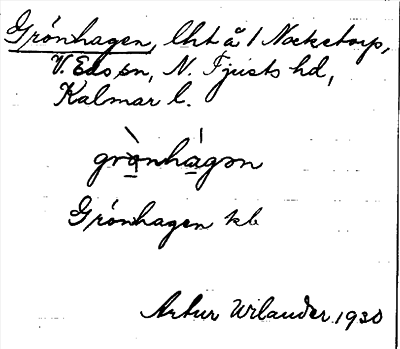 Grönhagen, lht å 1 Näcketorp,
V. Eds sn, N. Tjusts hd,
Kalmar l.
grönhagən
Grönhagen kb
Artur Urlander 1930